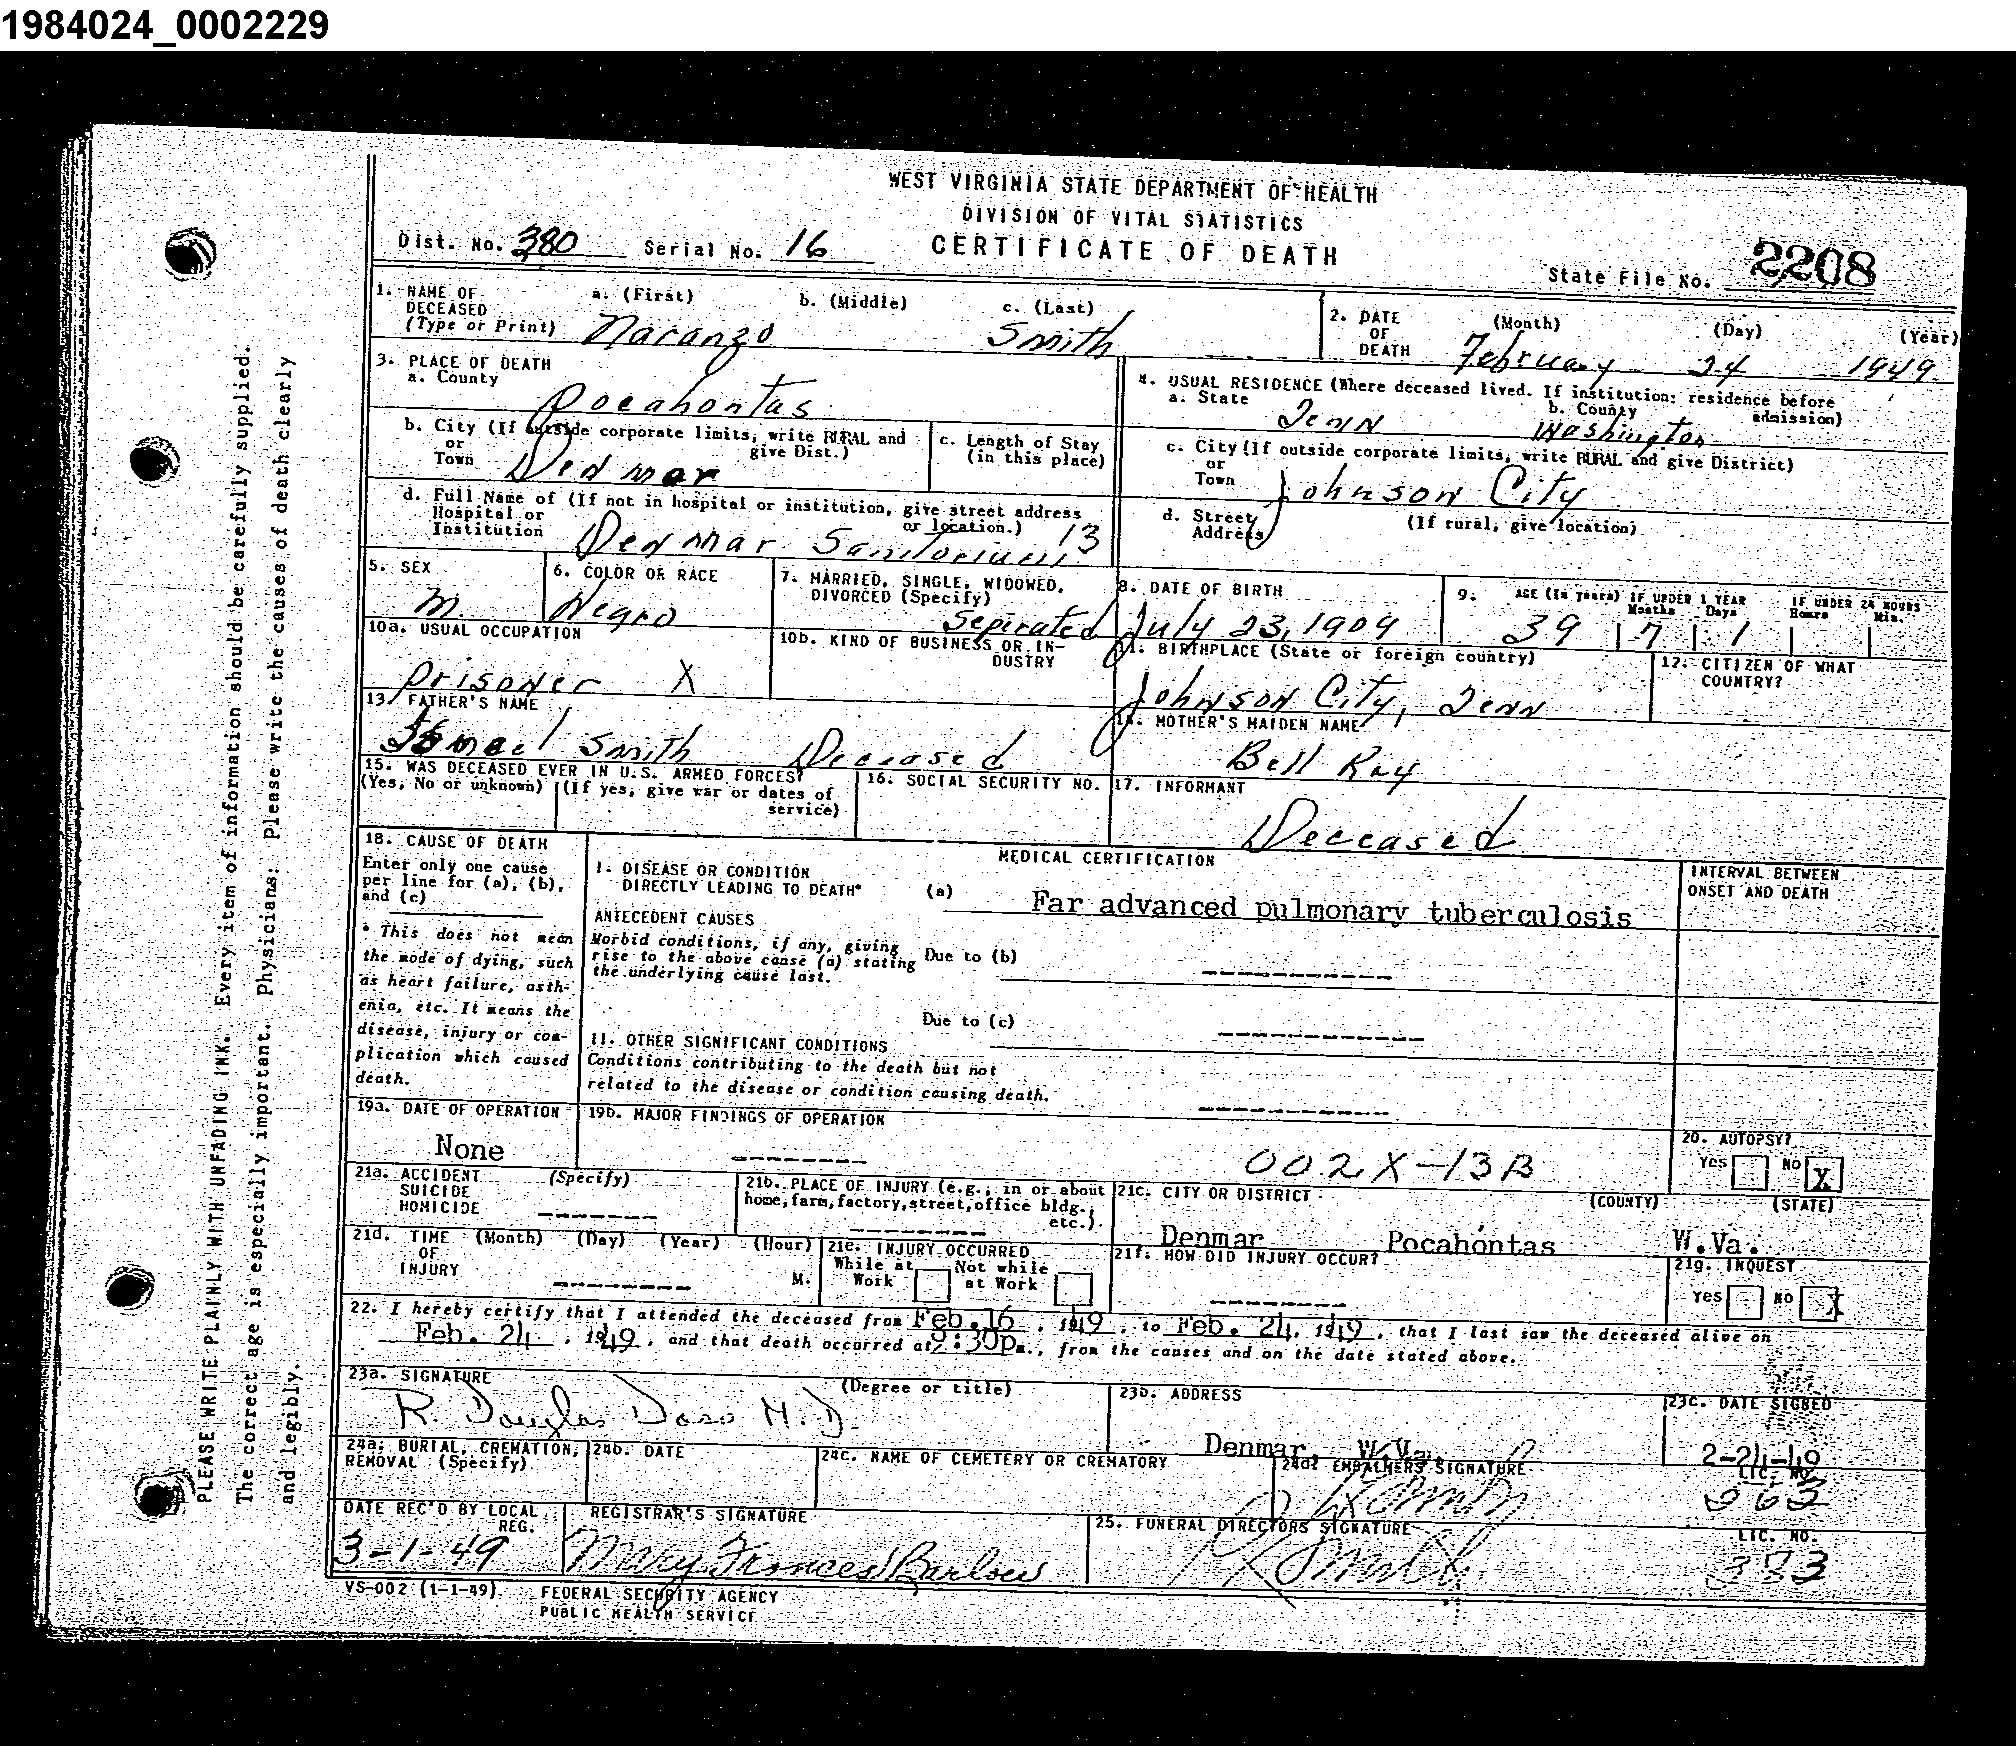 1984024_0002229
WEST VIRGINIA STATE DEPARTMENT OF HEALTH
DIVISION OF VITAL STATISTICS
Dist. No. 380 Serial No. 16 CERTIFICATE OF DEATH
State File No. 2208
1. NAME OF DECEASED (Type or Print) a. (First) b. (Middle) c. (Last)
Naranzo Smith
2. DATE OF DEATH (Month) (Day) (Year)
February 24 1949
3. PLACE OF DEATH
a. County
Pocahontas
4. USUAL RESIDENCE (Where deceased lived. If institution: residence before admission)
a. State b. County
Tenn Washington
b. City (If outside corporate limits, write RURAL and give Dist.)
or Town Denmar
c. Length of Stay (in this place)
c. City (If outside corporate limits, write RURAL and give District)
or Town Johnson City
d. Full Name of (If not in hospital or institution, give street address or location.)
Hospital or Institution Denmar Sanitorium 13
d. Street Address (If rural, give location)
5. SEX
M
6. COLOR OR RACE
Negro
7. MARRIED, SINGLE, WIDOWED, DIVORCED (Specify)
Sepirated
8. DATE OF BIRTH
July 23, 1909
9. AGE (In Years) IF UNDER 1 YEAR Months Days IF UNDER 24 HOURS Hours Min.
39 7 1
10a. USUAL OCCUPATION
prisoner X
10b. KIND OF BUSINESS OR INDUSTRY
11. BIRTHPLACE (State or foreign country)
Johnson City, Tenn
12. CITIZEN OF WHAT COUNTRY?
13. FATHER'S NAME
Smith Deceased
14. MOTHER'S MAIDEN NAME
Bell Ray
15. WAS DECEASED EVER IN U.S. ARMED FORCES?
(Yes, No or unknown) (If yes, give war or dates of service)
16. SOCIAL SECURITY NO.
17. INFORMANT
Deceased
18. CAUSE OF DEATH
Enter only one cause
per line for (a), (b),
and (c)
* This does not mean
the mode of dying, such
as heart failure, asth-
enia, etc. It means the
disease, injury or com-
plication which caused
death.
MEDICAL CERTIFICATION
INTERVAL BETWEEN ONSET AND DEATH
I. DISEASE OR CONDITION
DIRECTLY LEADING TO DEATH* (a) Far advanced pulmonary tuberculosis
ANTECEDENT CAUSES
Morbid conditions, if any, giving
rise to the above cause (a) stating
the underlying cause last.
Due to (b) ----------
Due to (c) -----------
11. OTHER SIGNIFICANT CONDITIONS
Conditions contributing to the death but not
related to the disease or condition causing death. ----------
19a. DATE OF OPERATION
None
19b. MAJOR FINDINGS OF OPERATION
-------
002X-13B
20. AUTOPSY?
YES NO X
21a. ACCIDENT SUICIDE HOMICIDE (Specify) ------
21b. PLACE OF INJURY (e.g., in or about
home, farm, factory, street, office bldg.,
etc.) -------
21c. CITY OR DISTRICT (COUNTY) (STATE)
Denmar Pocahontas W.Va.
21d. TIME OF INJURY (Month) (Day) (Year) (Hour) M.
21e. INJURY OCCURRED
While at Work Not while at Work
21f. HOW DID INJURY OCCUR?
-------
21g. INQUEST
YES NO X
22. I hereby certify that I attended the deceased from Feb. 16, 1949, to Feb. 24, 1949, that I last saw the deceased alive on
Feb. 24, 1949, and that death occurred at 9:30P m., from the causes and on the date stated above.
23a. SIGNATURE (Degree or title)
R. Douglas Doss M.D.
23b. ADDRESS
Denmar, W.Va.
23c. DATE SIGNED
2-24-49
24a. BURIAL, CREMATION, REMOVAL (Specify)
24b. DATE
24c. NAME OF CEMETERY OR CREMATORY
24d. EMBALMERS SIGNATURE
LIC. NO.
DATE REC'D BY LOCAL REG.
3-1-49
REGISTRAR'S SIGNATURE
Mary Frances Barlow
25. FUNERAL DIRECTORS SIGNATURE
LIC. NO.
VS-002 (1-1-49)
FEDERAL SECURITY AGENCY
PUBLIC HEALTH SERVICE
PLEASE WRITE PLAINLY WITH UNFADING INK. Every item of information should be carefully supplied.
The correct age is especially important. Physicians: Please write the causes of death clearly
and legibly.